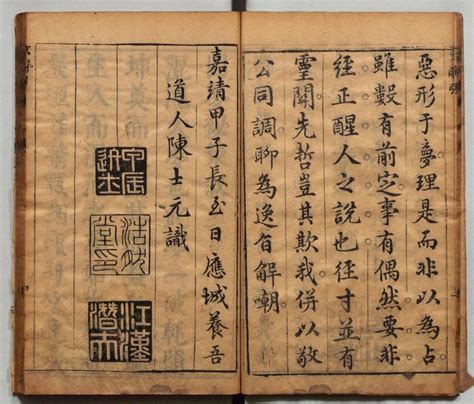 惡形于夢理是而非以為占
雖數有前定事有偶然要非
徑正醒人之說也徑寸並有
靈關先哲豈其欺我併以敬
公同調聊為逸旨解嘲
嘉靖甲子長至日應城養吾
道人陳士元識
甲辰進士
浩然堂印
江漢潛夫